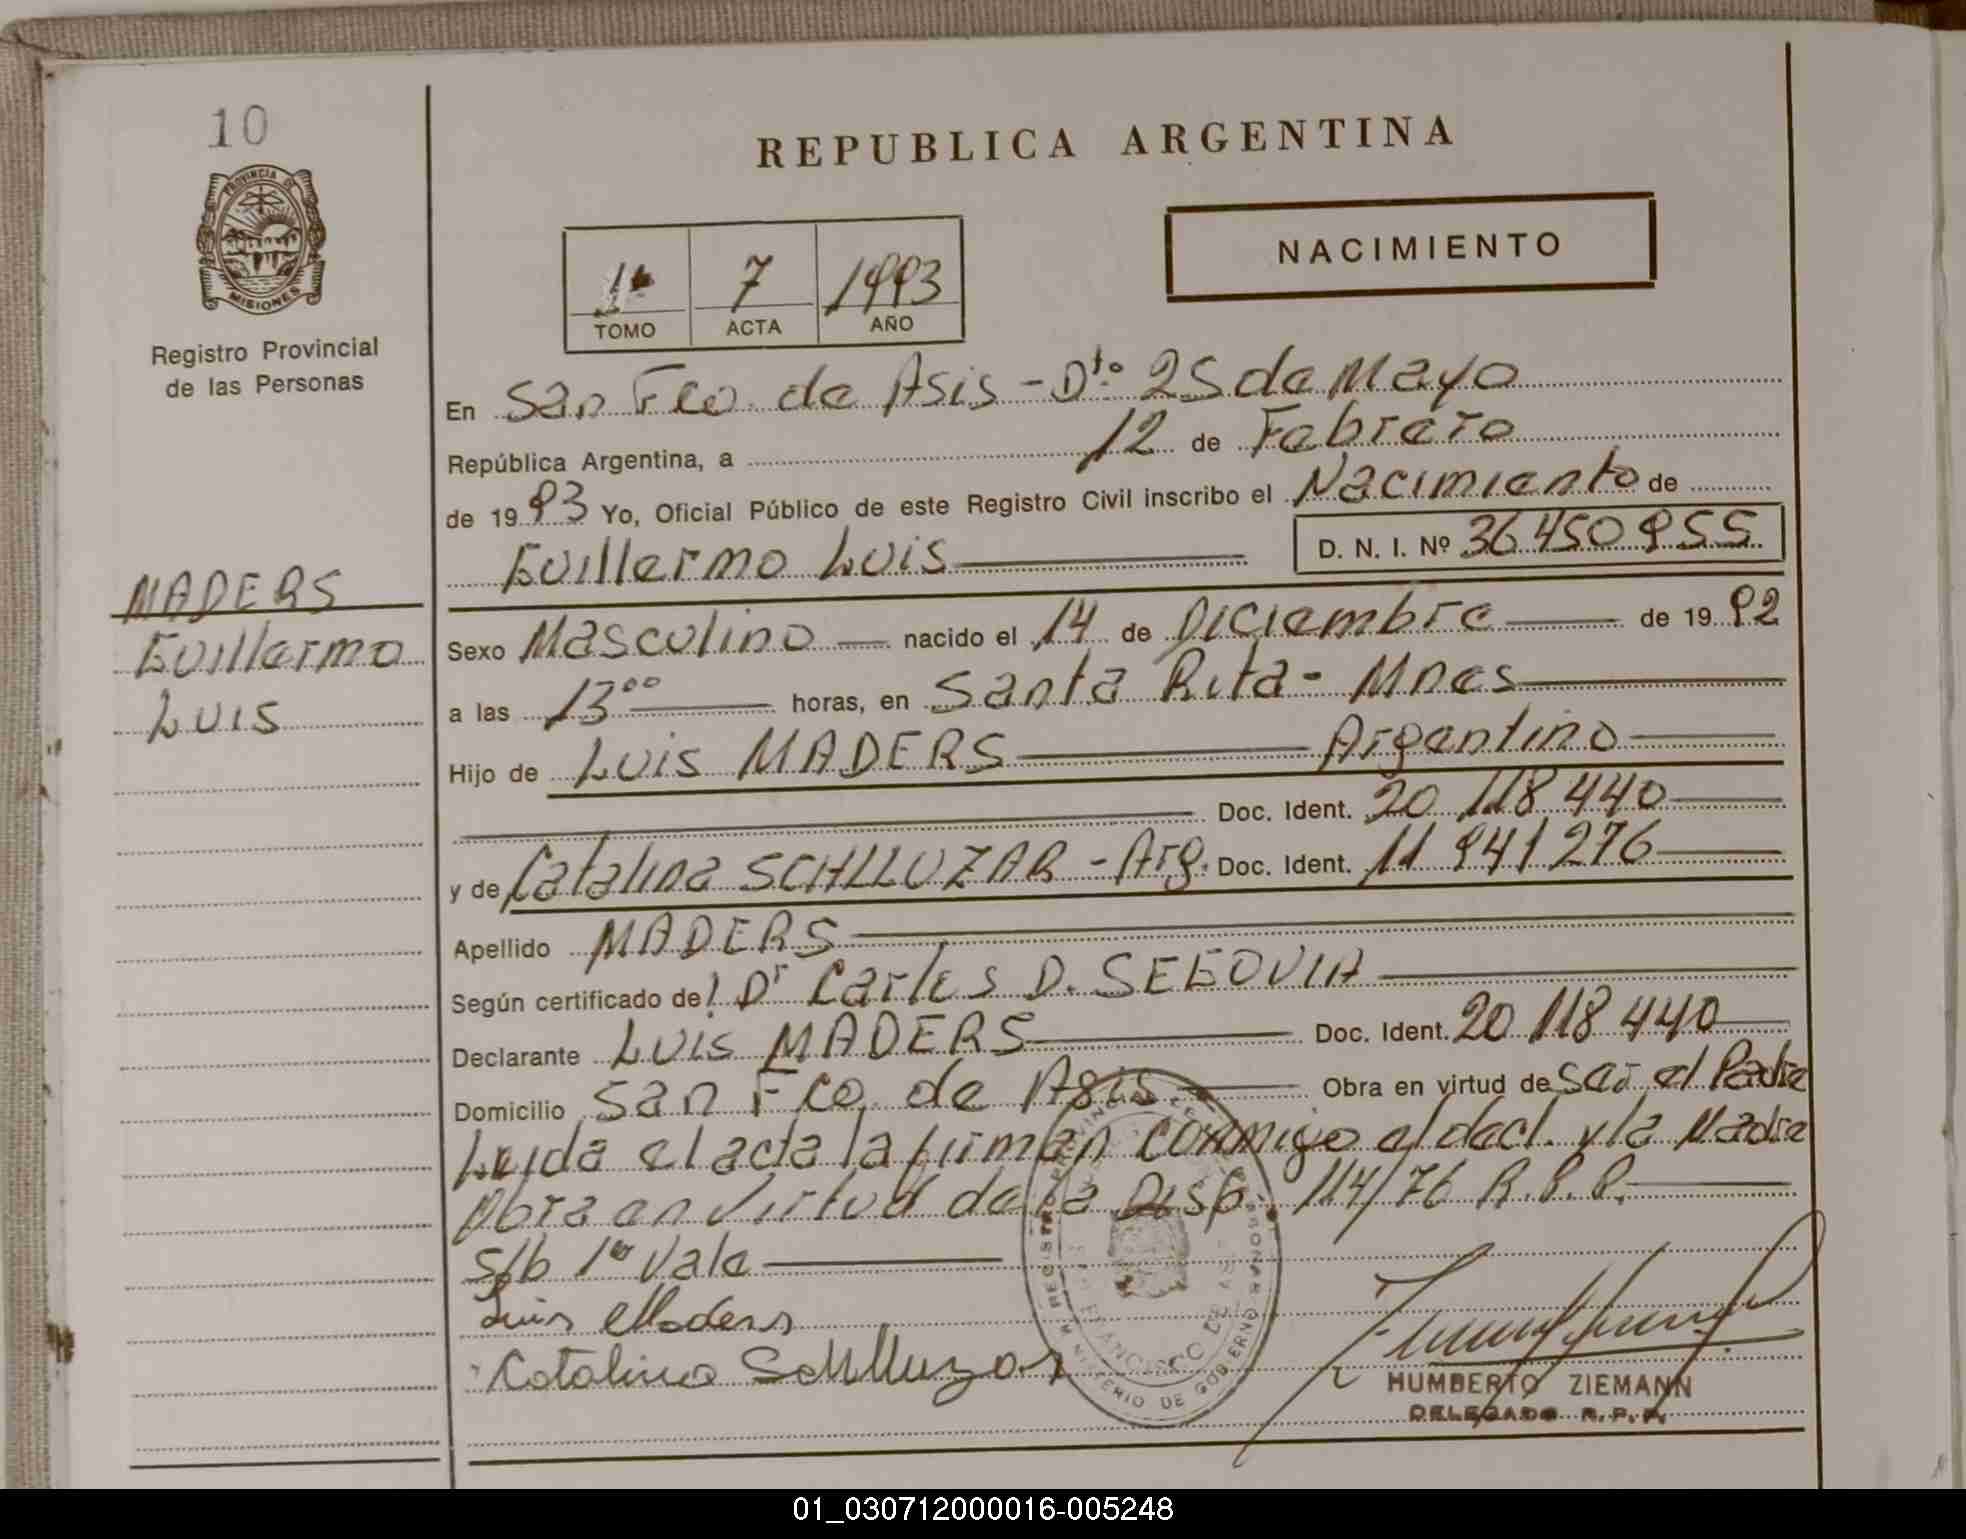 10
PROVINCIA DE
MISIONES
Registro Provincial
de las Personas
MADERS
Guillermo
Luis
REPUBLICA ARGENTINA
NACIMIENTO
1º 7 1993
TOMO ACTA AÑO
En San Fco. de Asis - Dto. 25 de Mayo
República Argentina, a 12 de Febrero
de 1993 Yo, Oficial Público de este Registro Civil inscribo el Nacimiento de
Guillermo Luis D. N. I. Nº 36 450 955
Sexo Masculino nacido el 14 de Diciembre de 1992
a las 13⁰⁰ horas, en Santa Rita - Mnes
Hijo de Luis MADERS Argentino
Doc. Ident. 20 118 440
y de Catalina SCHLLUZAR - Arg. Doc. Ident. 11 941 276
Apellido MADERS
Según certificado de Dr Carlos D. SEGOVIA
Declarante Luis MADERS Doc. Ident. 20 118 440
Domicilio San Fco. de Asis Obra en virtud de ser el Padre
Leida el acta la firman conmigo el decl. y la Madre
Obra en Virtud de la Disp. 114/76 R.P.P.
s/b 1º Vale
Luis Maders
Catalina Schlluzar
REGISTRO PROVINCIAL DE LAS PERSONAS
SAN FRANCISCO DE ASIS
MINISTERIO DE GOBIERNO
HUMBERTO ZIEMANN
DELEGADO R.P.P.
01_030712000016-005248